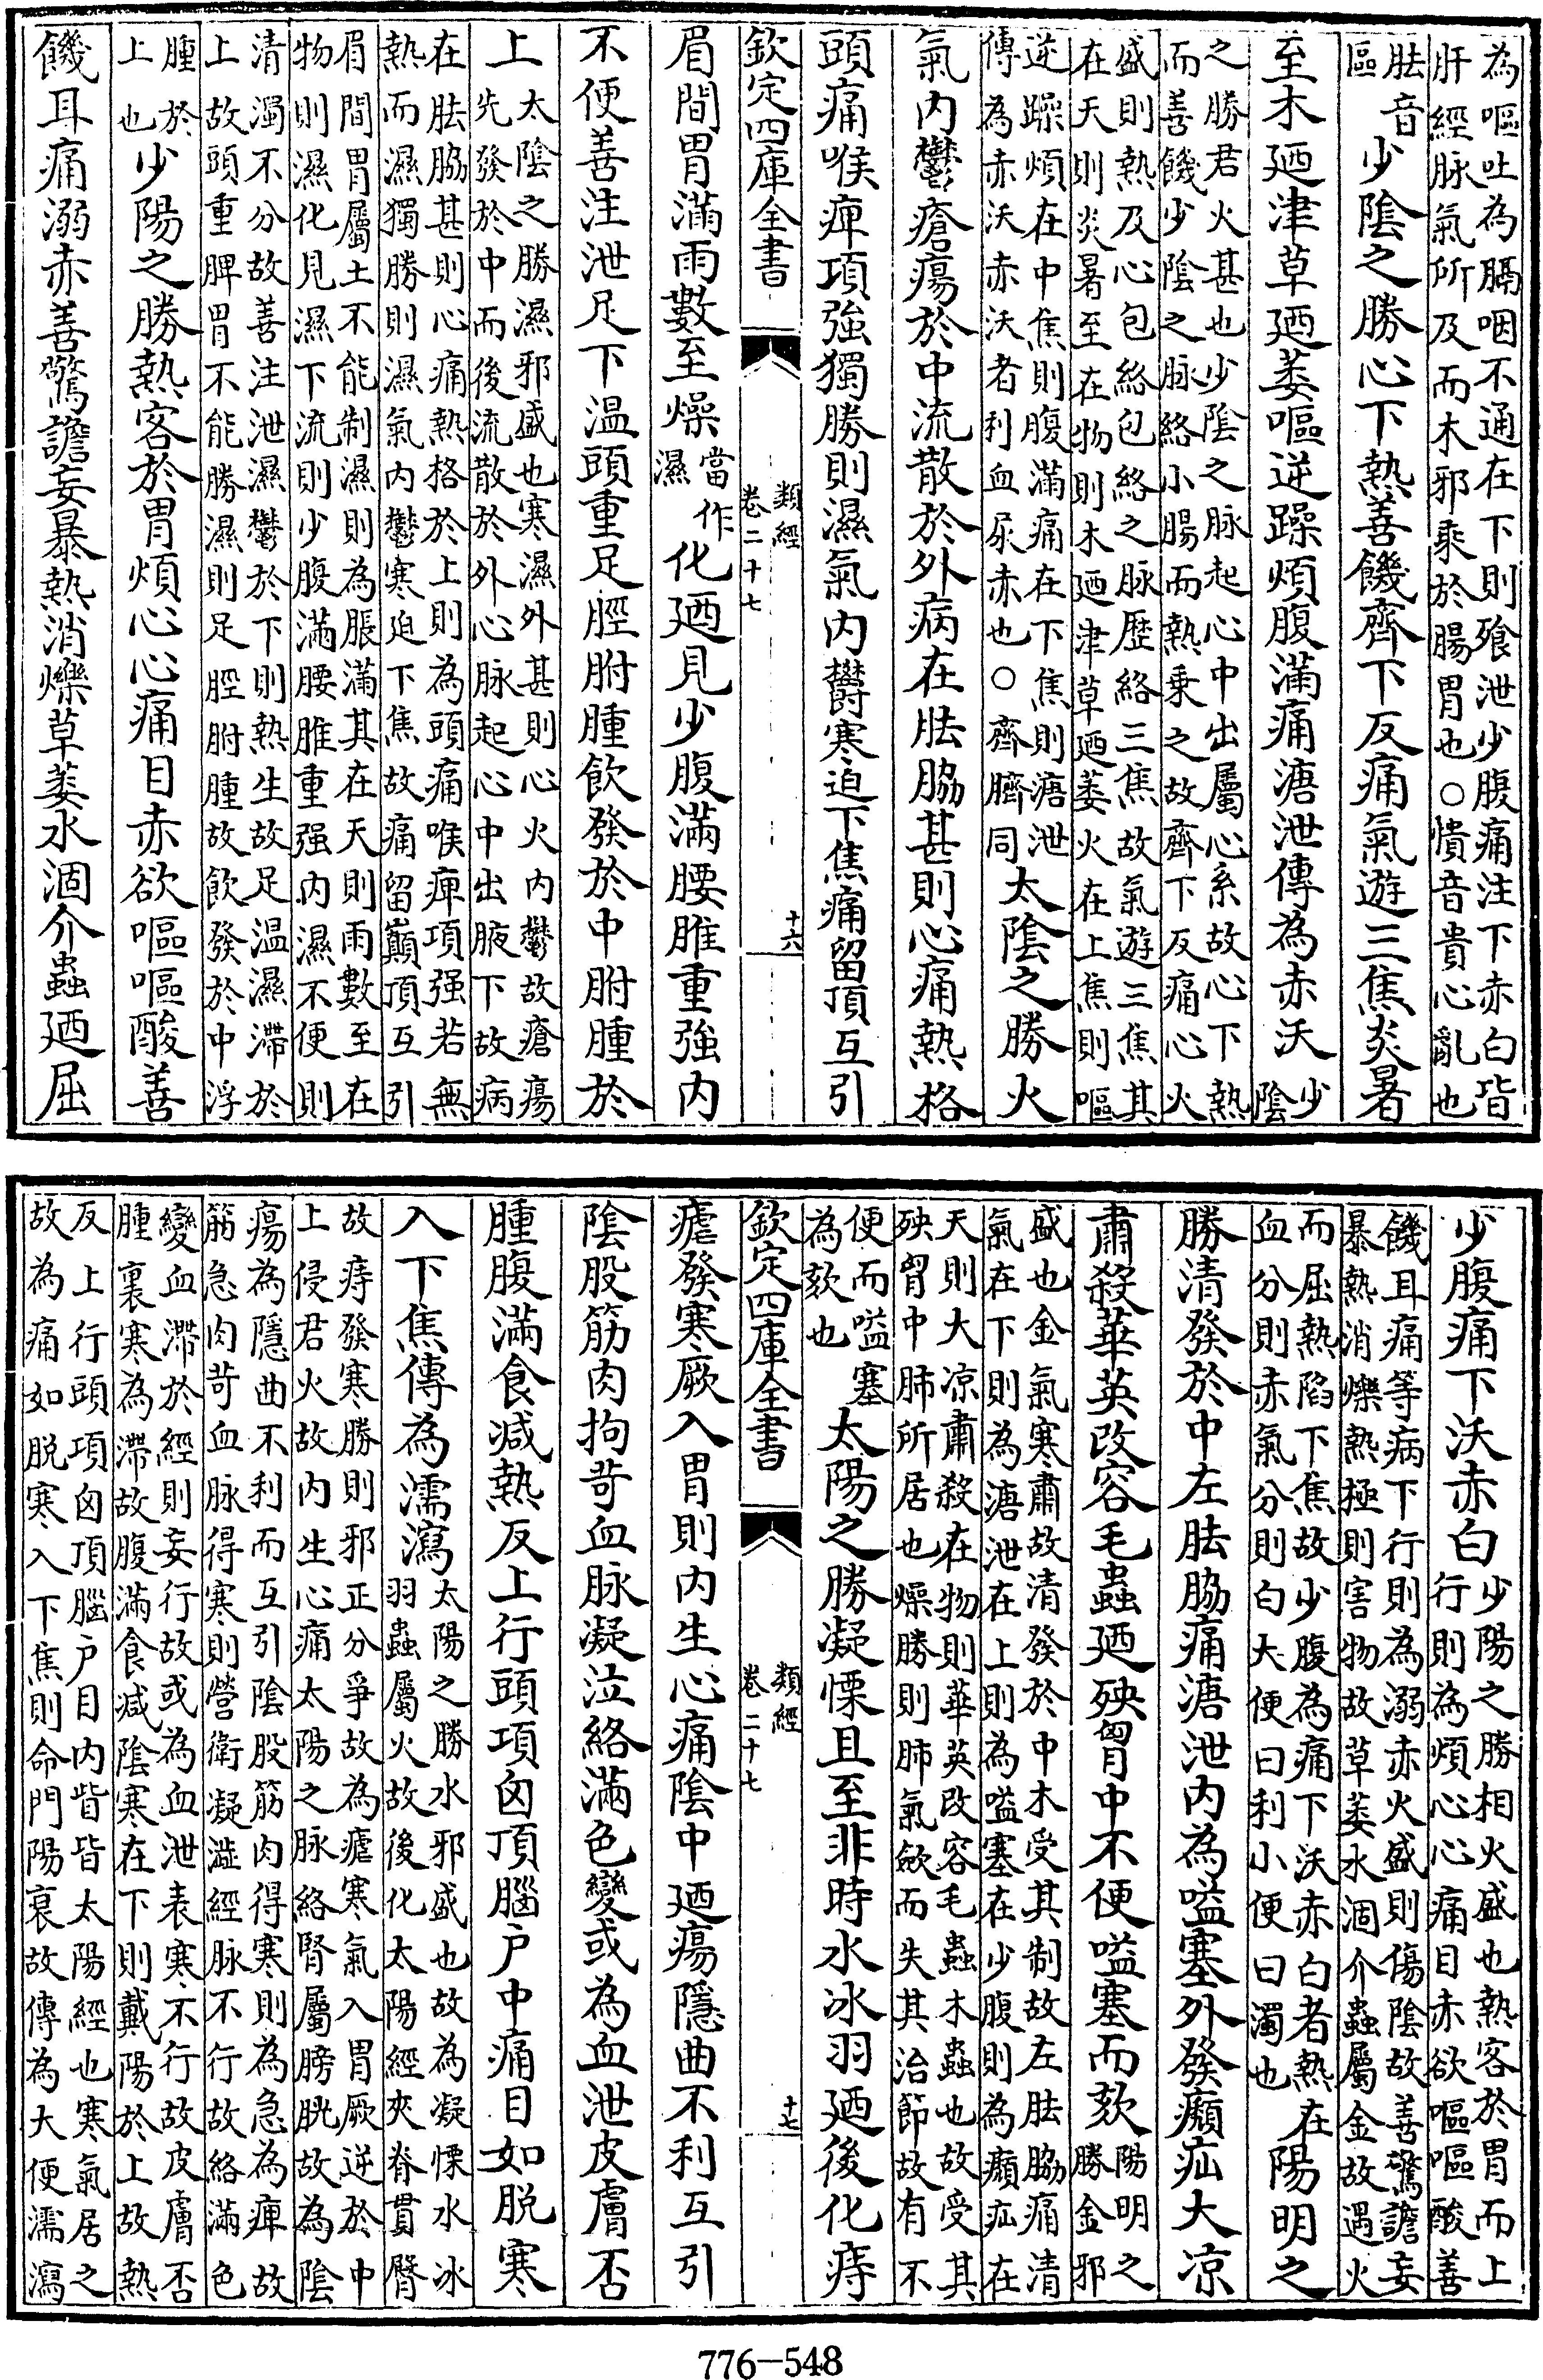 為嘔吐為膈咽不通在下則飱泄少腹痛注下赤白皆
肝經脉氣所及而木邪乘於腸胃也○憒音貴心亂也
胠音
區
少隂之勝心下熱善饑齊下反痛氣遊三焦炎暑
至木廼津草廼萎嘔逆躁煩腹滿痛溏泄傳為赤沃
少
隂
之勝君火甚也少隂之脉起心中出屬心系故心下熱
而善饑少隂之脉絡小腸而熱乘之故齊下反痛心火
盛則熱及心包絡包絡之脉歷絡三焦故氣遊三焦其
在天則炎暑至在物則木廼津草廼萎火在上焦則嘔
逆躁煩在中焦則腹滿痛在下焦則溏泄
傳為赤沃赤沃者利血尿赤也○齊臍同
太隂之勝火
氣内鬱瘡瘍於中流散於外病在胠脇甚則心痛熱格
頭痛喉痺項強獨勝則濕氣内鬱寒迫下焦痛留頂互引
欽定四庫全書
類經
卷二十七
十六
眉間胃滿雨數至燥
當作
濕
化廼見少腹滿腰脽重強内
不便善注泄足下温頭重足脛胕腫飲發於中胕腫於
上
太隂之勝濕邪盛也寒濕外甚則心火内鬱故瘡瘍
先發於中而後流散於外心脉起心中出腋下故病
在胠脇甚則心痛熱格於上則為頭痛喉痺項强若無
熱而濕獨勝則濕氣内鬱寒迫下焦故痛留巔頂互引
眉間胃屬土不能制濕則為脹滿其在天則雨數至在
物則濕化見濕下流則少腹滿腰脽重强内濕不便則
清濁不分故善注泄濕鬱於下則熱生故足温濕滯於
上故頭重脾胃不能勝濕則足脛胕腫故飲發於中浮
腫於
上也
少陽之勝熱客於胃煩心心痛目赤欲嘔嘔酸善
饑耳痛溺赤善驚譫妄暴熱消爍草萎水涸介蟲廼屈
少腹痛下沃赤白
少陽之勝相火盛也熱客於胃而上
行則為煩心心痛目赤欲嘔嘔酸善
饑耳痛等病下行則為溺赤火盛則傷隂故善驚譫妄
暴熱消爍熱極則害物故草萎水涸介蟲屬金故遇火
而屈熱陷下焦故少腹為痛下沃赤白者熱在
血分則赤氣分則白大便曰利小便曰濁也
陽明之
勝清發於中左胠脇痛溏泄内為嗌塞外發㿗疝大凉
肅殺華英改容毛蟲廼殃胷中不便嗌塞而欬
陽明之
勝金邪
盛也金氣寒肅故清發於中木受其制故左胠脇痛清
氣在下則為溏泄在上則為嗌塞在少腹則為㿗疝在
天則大凉肅殺在物則華英改容毛蟲木蟲也故受其
殃胷中肺所居也燥勝則肺氣歛而失其治節故有不
便而嗌塞
為欬也
太陽之勝凝慄且至非時水冰羽廼後化痔
欽定四庫全書
類經
卷二十七
十七
瘧發寒厥入胃則内生心痛隂中廼瘍隱曲不利互引
隂股筋肉拘苛血脉凝泣絡滿色變或為血泄皮膚否
腫腹滿食减熱反上行頭項囟頂腦户中痛目如脱寒
入下焦傳為濡瀉
太陽之勝水邪盛也故為凝慄水冰
羽蟲屬火故後化太陽經夾脊貫臀
故痔發寒勝則邪正分爭故為瘧寒氣入胃厥逆於中
上侵君火故内生心痛太陽之脉絡腎屬膀胱故為隂
瘍為隱曲不利而互引隂股筋肉得寒則為急為痺故
筋急肉苛血脉得寒則營衛凝澁經脉不行故絡滿色
變血滯於經則妄行故或為血泄表寒不行故皮膚否
腫裏寒為滯故腹滿食减隂寒在下則戴陽於上故熱
反上行頭項囟頂腦户目内眥皆太陽經也寒氣居之
故為痛如脱寒入下焦則命門陽衰故傳為大便濡瀉
776—548